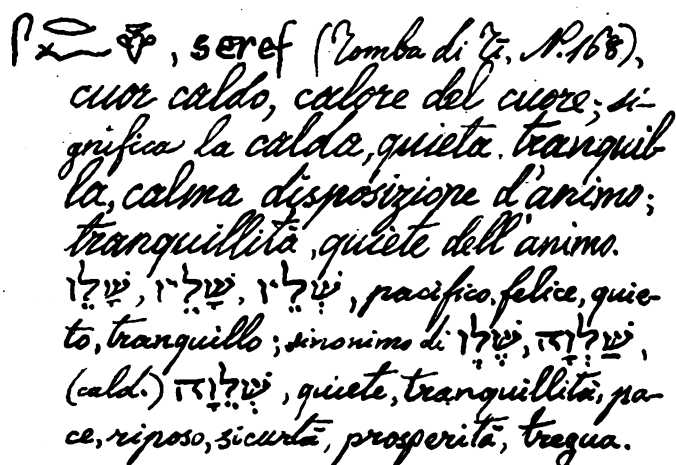 𓋴𓂋𓆑, seref (Tomba di Ti, N. 168),
cuor caldo, calore del cuore; si-
gnifica la calda, quieta, tranquil-
la, calma disposizione d'animo;
tranquillità, quiete dell'animo.
שָׁלֵו, שָׁלֵיו, שְׁלֵיו, pacifico, felice, quie-
to, tranquillo; sinonimo di שֶׁלֶו, שַׁלְוָה,
(cald.) שְׁלֵוָה, quiete, tranquillità, pa-
ce, riposo, sicurtà, prosperità, tregua.